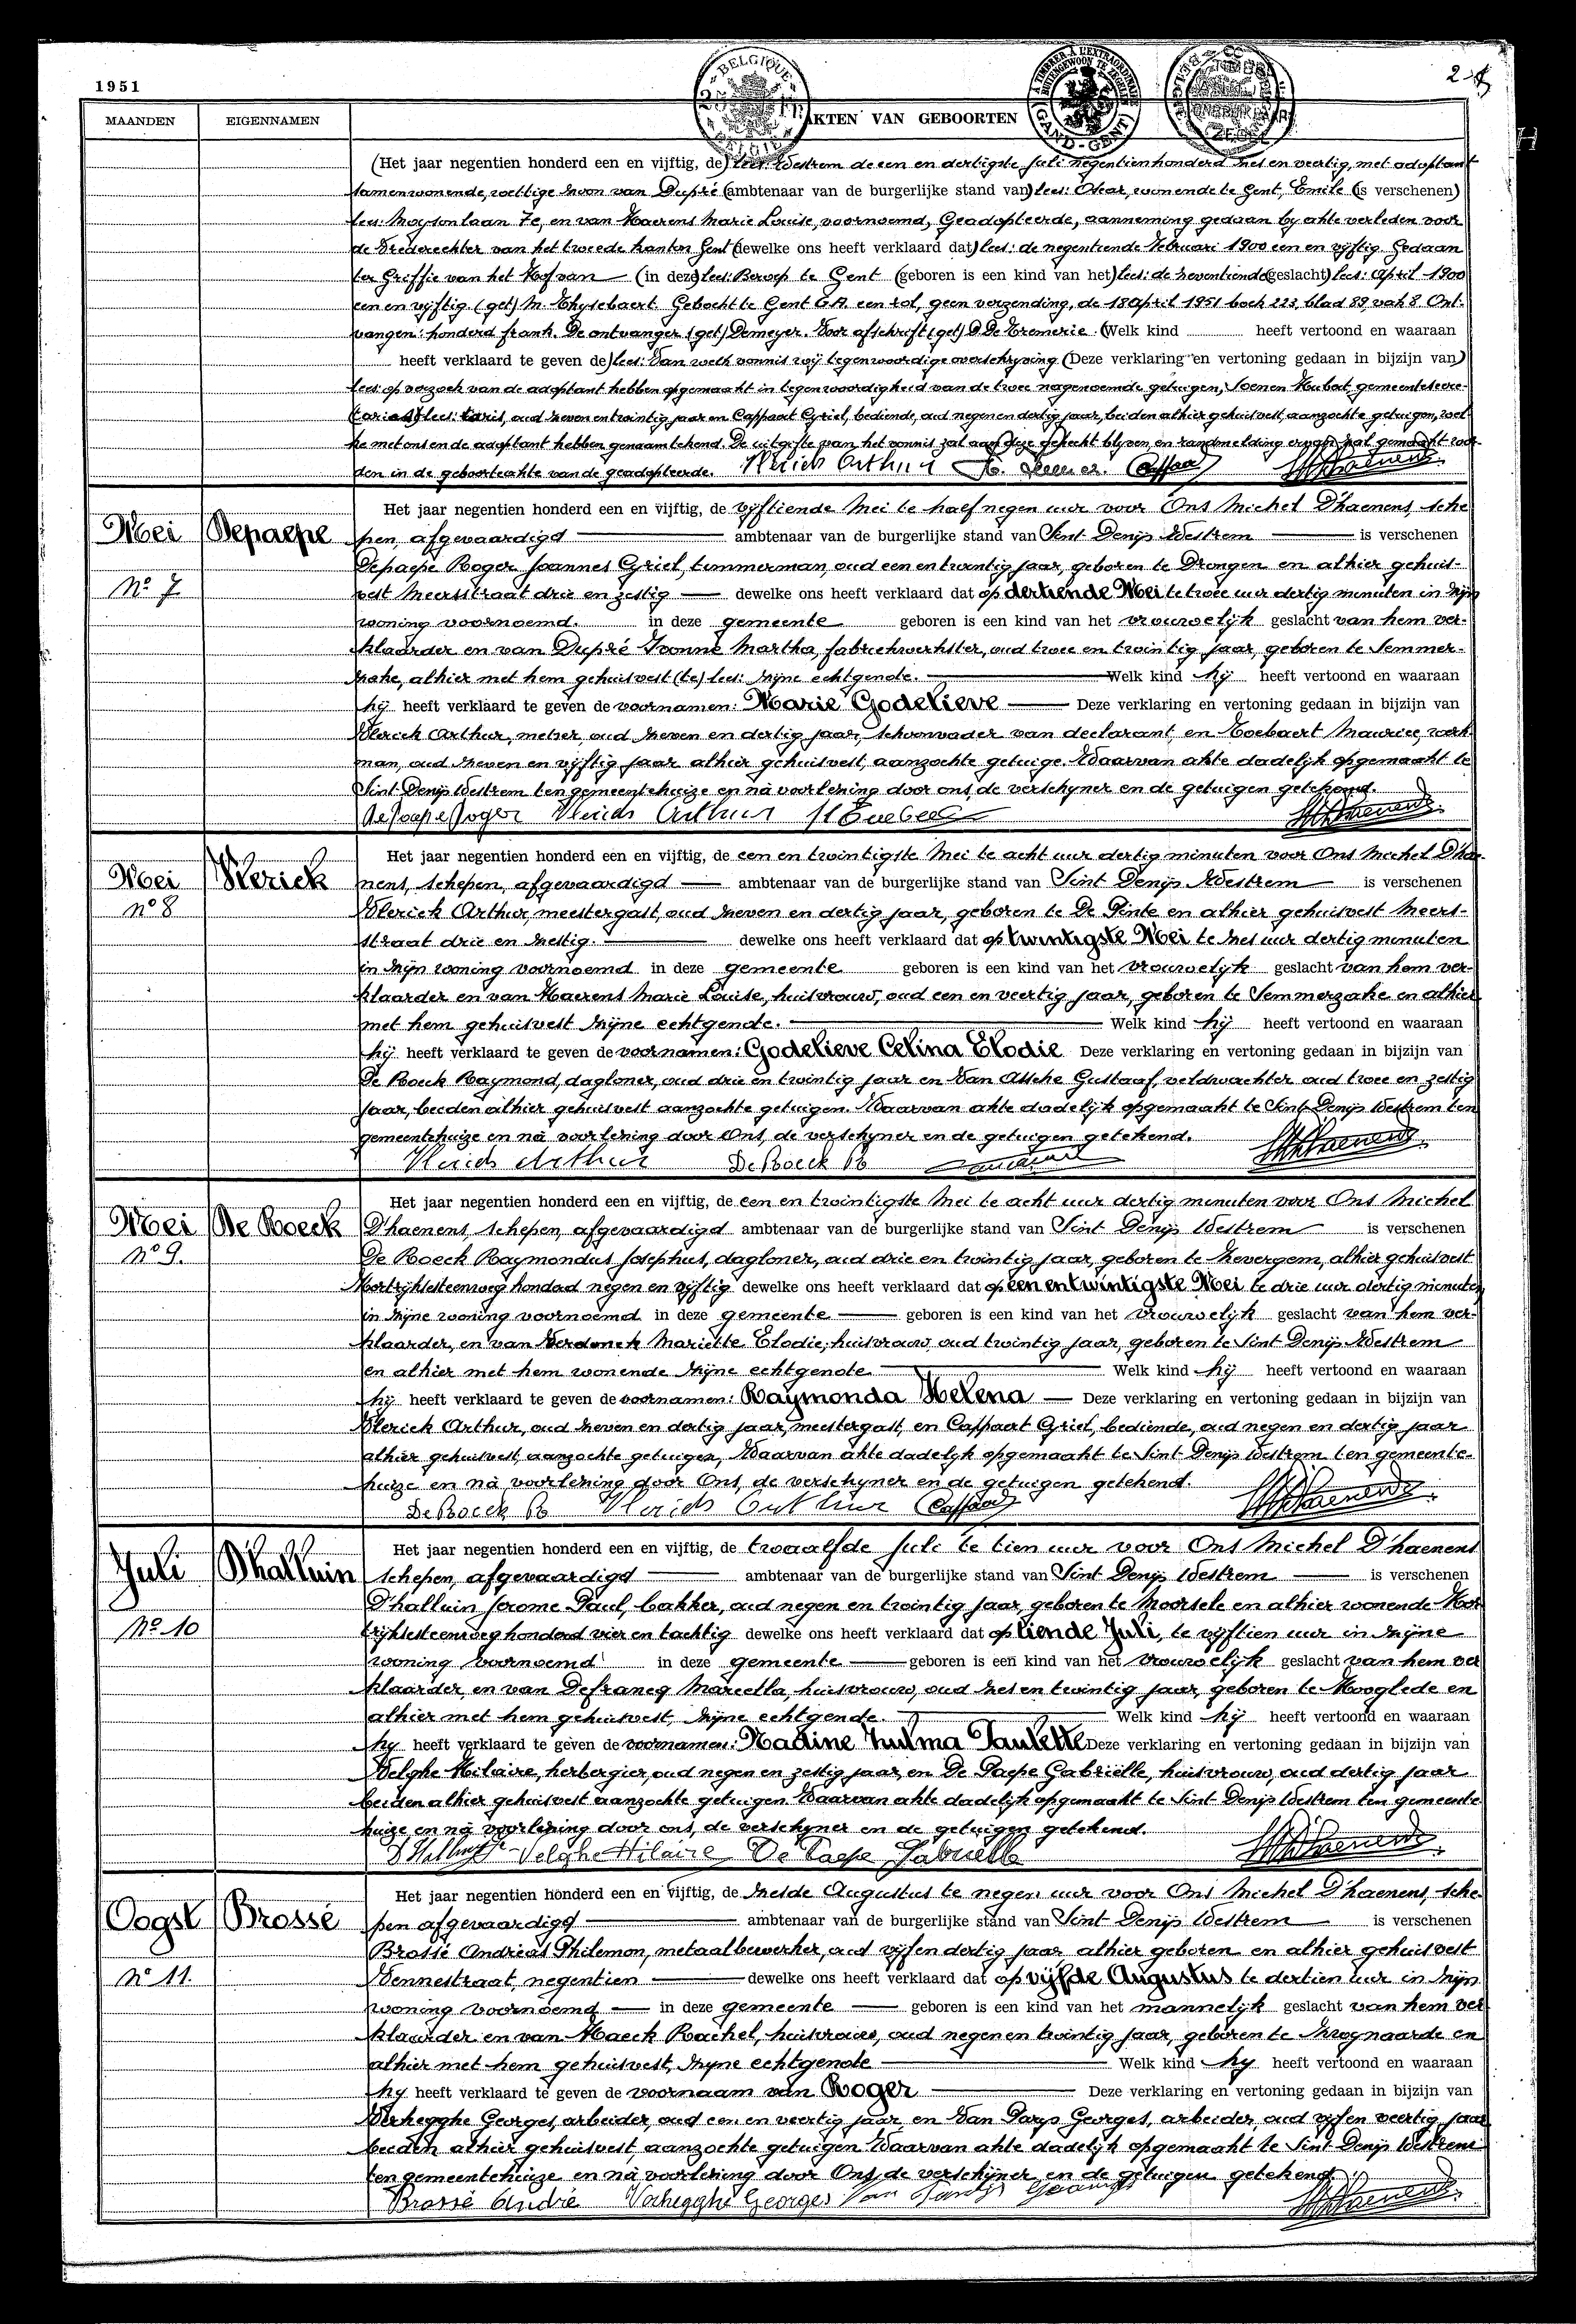 1951
BELGIQUE
A TIMBRER À L'EXTRAORDINAIRE
BUITENGEWOON TE ZEGELEN
GAND-GENT
2
MAANDEN EIGENNAMEN AKTEN VAN GEBOORTEN
(Het jaar negentien honderd een en vijftig, de) lees: Westrem de een en dertigste Juli negentienhonderd zes en veertig, met adoptant
samenwonende, wettige zoon van Dupré (ambtenaar van de burgerlijke stand van) lees: Oscar, wonende te Gent, Emile (is verschenen)
lees: Moysonlaan 7e, en van Haerens Marie Louise, voornoemd, Geadopteerde, aanneming gedaan by akte verleden voor
de Vrederechter van het tweede kanton Gent (dewelke ons heeft verklaard dat) lees: de negentiende Februari 1900 een en vyftig. Gedaan
ter Griffie van het Hof van (in deze) lees: Beroep te Gent (geboren is een kind van het) lees: de zeventiende (geslacht) lees: April 1900
een en vyftig. (get) M. Thysebaert. Geboekt te Gent G.A. een rol, geen verzending, de 18 April 1951 boek 223, blad 89, vak 8. Ont-
vangen: honderd frank. De ontvanger (get) Demeyer. Voor afschrift (get) D. De Tremerie. (Welk kind heeft vertoond en waaraan
heeft verklaard te geven de) lees: Van welk vonnis wij tegenwoordige overschryving (Deze verklaring en vertoning gedaan in bijzijn van)
lees: op verzoek van de adoptant hebben opgemaakt in tegenwoordigheid van de twee nagenoemde getuigen, Soenen Hubert, gemeentesecre-
taris, oud zeven en twintig jaar en Cassaert Cyriel, bediende, oud negen en dertig jaar, beiden alhier gehuisvest, aanzochte getuigen, wel-
ke met ons en de adoptant hebben genaamtekend. De uitgifte van het vonnis zal aan deze gehecht blyven en randmelding ervan zal gemaakt wor-
den in de geboorteakte van de geadopteerde. Vlerick Arthur
Mei Depaepe Het jaar negentien honderd een en vijftig, de vyftiende Mei te half negen uur voor Ons Michel D'haenens, sche
pen, afgevaardigd ambtenaar van de burgerlijke stand van Sint Denijs Westrem is verschenen
Depaepe Roger Joannes Cyriel, timmerman, oud een en twintig jaar, geboren te Drongen en alhier gehuis-
No 7 vest Meersstraat drie en zestig dewelke ons heeft verklaard dat op dertiende Mei te twee uur dertig minuten in zijn
woning voornoemd. in deze gemeente geboren is een kind van het vrouwelijk geslacht van hem ver-
klaarder en van Dupré Yvonne Martha, fabriekwerkster, oud twee en twintig jaar, geboren te Semmer-
zake, alhier met hem gehuisvest (te) lees: zijne echtgenote. Welk kind hij heeft vertoond en waaraan
hij heeft verklaard te geven de voornamen: Marie Godelieve Deze verklaring en vertoning gedaan in bijzijn van
Vlerick Arthur, metser, oud zeven en dertig jaar, schoonvader van declarant, en Goebaert Maurice, werk
man, oud zeven en vyftig jaar alhier gehuisvest, aanzochte getuige. Waarvan akte dadelyk opgemaakt te
Sint Denijs Westrem ten gemeentehuize en nà voorlezing door ons, de verschyner en de getuigen getekend.
Depaepe Roger Vlerick Arthur
Mei Vlerick Het jaar negentien honderd een en vijftig, de een en twintigste Mei te acht uur dertig minuten voor Ons Michel D'hae-
nens, schepen, afgevaardigd ambtenaar van de burgerlijke stand van Sint Denijs Westrem is verschenen
no 8 Vlerick Arthur, meestergast, oud zeven en dertig jaar, geboren te De Pinte en alhier gehuisvest Meers-
straat drie en zestig. dewelke ons heeft verklaard dat op twintigste Mei te zes uur dertig minuten
in zijn woning voornoemd in deze gemeente geboren is een kind van het vrouwelijk geslacht van hem ver-
klaarder en van Haerens Marie Louise, huisvrouw, oud een en veertig jaar, geboren te Semmerzake en alhier
met hem gehuisvest zijne echtgenote. Welk kind hij heeft vertoond en waaraan
hij heeft verklaard te geven de voornamen: Godelieve Celina Elodie Deze verklaring en vertoning gedaan in bijzijn van
De Boeck Raymond, dagloner, oud drie en twintig jaar en Van Assche Gustaaf, veldwachter oud twee en zestig
jaar, beiden alhier gehuisvest aanzochte getuigen. Waarvan akte dadelijk opgemaakt te Sint Denijs Westrem ten
gemeentehuize en nà voorlezing door Ons, de verschyner en de getuigen getekend.
Vlerick Arthur De Boeck R
Mei De Boeck Het jaar negentien honderd een en vijftig, de een en twintigste Mei te acht uur dertig minuten voor Ons Michel
D'haenens, schepen, afgevaardigd ambtenaar van de burgerlijke stand van Sint Denijs Westrem is verschenen
No 9. De Boeck Raymondus Josephus, dagloner, oud drie en twintig jaar, geboren te Zevergem, alhier gehuisvest
Kortrijksesteenweg honderd negen en vyftig dewelke ons heeft verklaard dat op een en twintigste Mei te drie uur dertig minuten
in zijne woning voornoemd in deze gemeente geboren is een kind van het vrouwelijk geslacht van hem ver-
klaarder, en van Verdonck Mariette Elodie, huisvrouw, oud twintig jaar, geboren te Sint Denijs Westrem
en alhier met hem wonende zijne echtgenote Welk kind hij heeft vertoond en waaraan
hij heeft verklaard te geven de voornamen: Raymonda Helena Deze verklaring en vertoning gedaan in bijzijn van
Vlerick Arthur, oud zeven en dertig jaar, meestergast, en Cassaert Cyriel, bediende, oud negen en dertig jaar
alhier gehuisvest, aanzochte getuigen, Waarvan akte dadelyk opgemaakt te Sint Denijs Westrem ten gemeente-
huize en nà voorlezing door Ons, de verschyner en de getuigen getekend.
De Boeck R Vlerick Arthur
Juli D'halluin Het jaar negentien honderd een en vijftig, de twaalfde Juli te tien uur voor Ons Michel D'haenens
schepen, afgevaardigd ambtenaar van de burgerlijke stand van Sint Denijs Westrem is verschenen
D'halluin Jerome Paul, bakker, oud negen en twintig jaar, geboren te Moorsele en alhier wonende Kor
No 10 trijksesteenweg honderd vier en tachtig dewelke ons heeft verklaard dat op tiende Juli, te vyftien uur in zijne
woning voornoemd in deze gemeente geboren is een kind van het vrouwelijk geslacht van hem ver
klaarder, en van Defrancq Marcella, huisvrouw, oud zes en twintig jaar, geboren te Hooglede en
alhier met hem gehuisvest, zijne echtgenote. Welk kind hij heeft vertoond en waaraan
hy heeft verklaard te geven de voornamen: Nadine Zulma Paulette Deze verklaring en vertoning gedaan in bijzijn van
Velghe Hilaire, herbergier, oud negen en zestig jaar, en De Paepe Gabriëlle, huisvrouw, oud dertig jaar
beiden alhier gehuisvest aanzochte getuigen. Waarvan akte dadelijk opgemaakt te Sint Denijs Westrem ten gemeente
huize en nà voorlezing door ons, de verschyner en de getuigen getekend.
Velghe Hilaire De Paepe Gabrielle
Oogst Brossé Het jaar negentien honderd een en vijftig, de zesde Augustus te negen uur voor Ons Michel D'haenens, sche
pen afgevaardigd ambtenaar van de burgerlijke stand van Sint Denijs Westrem is verschenen
Brossé Andreas Philemon, metaalbewerker, oud vijf en dertig jaar alhier geboren en alhier gehuisvest
No 11. Vennestraat, negentien dewelke ons heeft verklaard dat op vijfde Augustus te dertien uur in zijn
woning voornoemd in deze gemeente geboren is een kind van het mannelijk geslacht van hem ver
klaarder en van Haeck Rachel, huisvrouw, oud negen en twintig jaar, geboren te Zwijnaarde en
alhier met hem gehuisvest, zijne echtgenote Welk kind hy heeft vertoond en waaraan
hy heeft verklaard te geven de voornaam van Roger Deze verklaring en vertoning gedaan in bijzijn van
Verhegghe Georges, arbeider, oud een en veertig jaar en Van Parys Georges, arbeider, oud vyf en veertig jaar
beiden alhier gehuisvest, aanzochte getuigen Waarvan akte dadelijk opgemaakt te Sint Denijs Westrem
ten gemeentehuize en nà voorlezing door Ons, de verschijner en de getuigen getekend.
Brossé André Verhegghe Georges Van Parys Georges